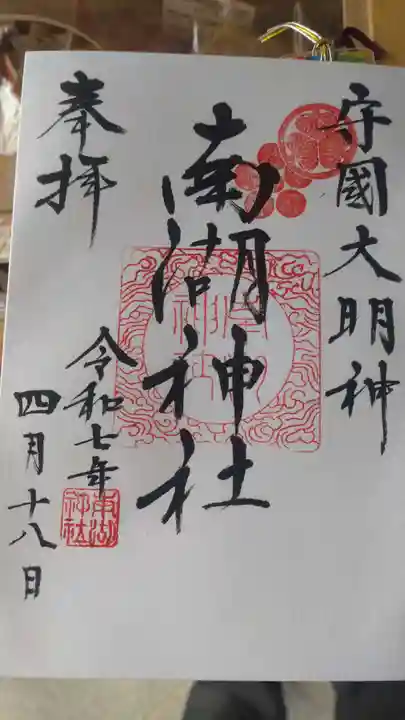 守國大明神
南湖神社
奉拝
令和七年
四月十八日
南湖神社